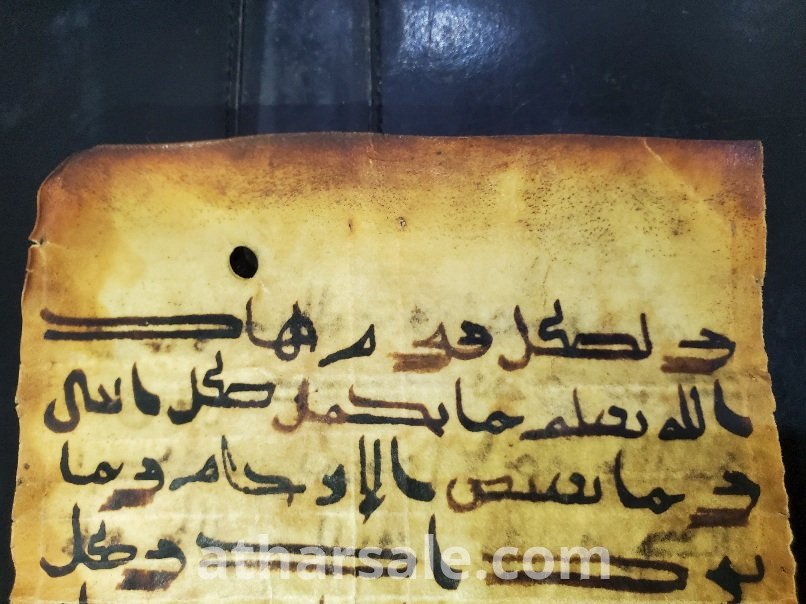 ولكل قوم هاد
الله يعلم ما تحمل كل انثى
وما تغيض الارحام وما
تزداد وكل
atharsale.com